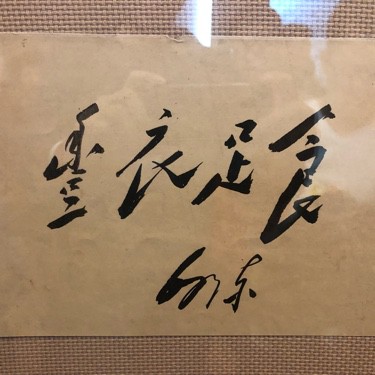 豐衣足食
泽东